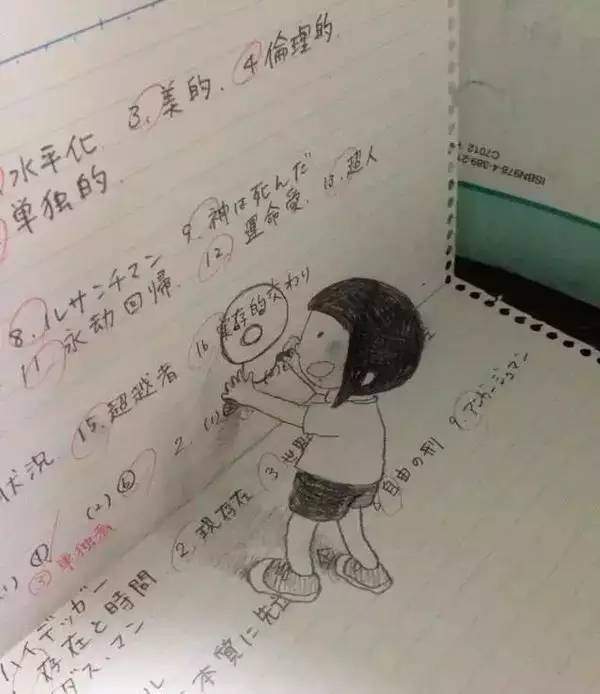 水平化 3. 美的. ④ 倫理的.
単独的
8. ルサンチマン 9. 神は死んだ
11. 永劫回帰. 12. 運命愛. 13. 超人
状況. 15. 超越者 16. 実存的交わり
(1) ④ (2) ⑥ 2. (1)
③ 単独者
ハイデッガー 2. 現存在 3. 世界
存在と時間
ダス・マン
本質に先 自由の刑 9. アンガージュマン
ISBN978-4-389-21
C7012